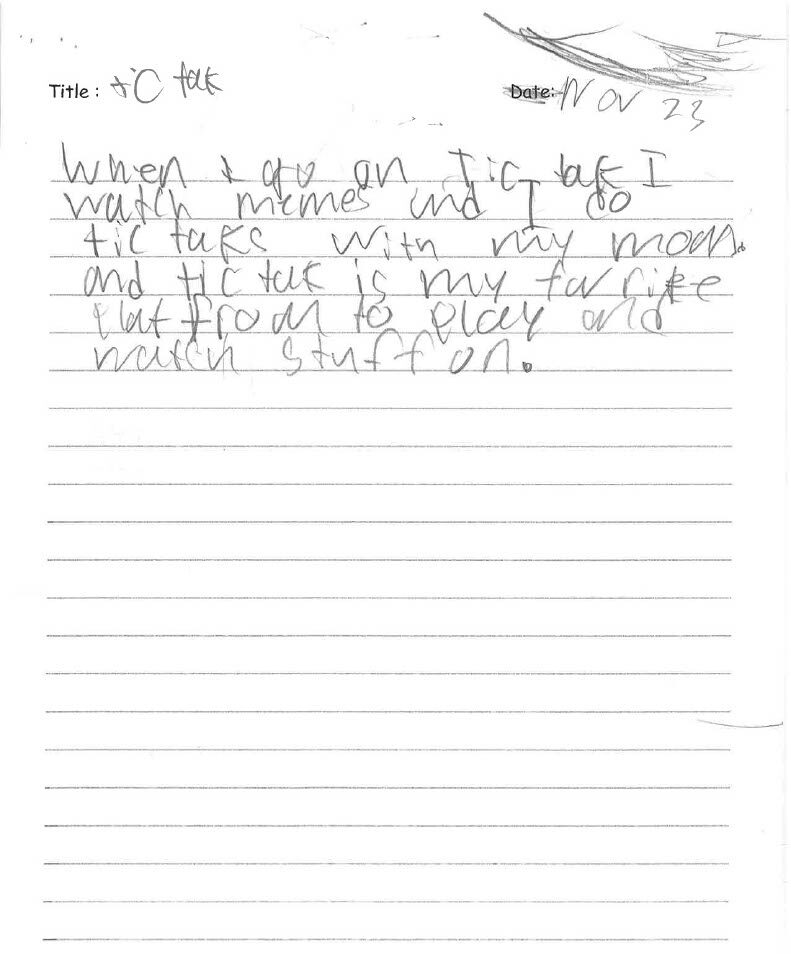 Title : tic tak
Date: Nov 23
When I go on Tic tak I
watch memes and I do
tic taks with my mom.
and tic tak is my favrite
platfrom to play and
watch stuff on.